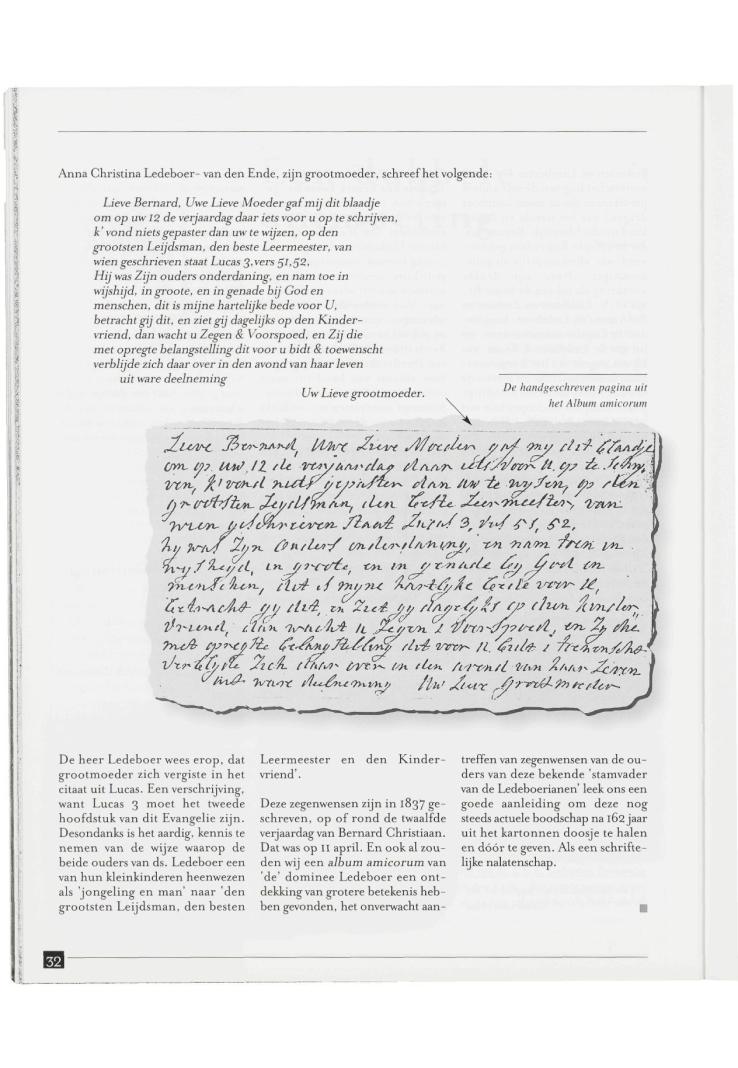 Anna Christina Ledeboer- van den Ende, zijn grootmoeder, schreef het volgende:
Lieve Bernard, Uwe Lieve Moeder gaf mij dit blaadje
om op uw 12 de verjaardag daar iets voor u op te schrijven,
k' vond niets gepaster dan uw te wijzen, op den
grootsten Leijdsman, den beste Leermeester, van
wien geschrieven staat Lucas 3,vers 51,52,
Hij was Zijn ouders onderdaning, en nam toe in
wijshijd, in groote, en in genade bij God en
menschen, dit is mijne hartelijke bede voor U,
betracht gij dit, en ziet gij dagelijks op den Kinder-
vriend, dan wacht u Zegen & Voorspoed, en Zij die
met opregte belangstelling dit voor u bidt & toewenscht
verblijde zich daar over in den avond van haar leven
uit ware deelneming
Uw Lieve grootmoeder.
De handgeschreven pagina uit
het Album amicorum
Lieve Bernard, Uwe Lieve Moeder gaf my dit blaadje
om op uw 12 de verjaardag daar iets voor u op te schry
ven, k' vond niets gepaster dan uw te wysen, op den
grootsten Leydsman, den beste Leermeester, van
wien geschrieven staat Lucas 3, vers 51, 52,
hy was Zyn ouders onderdaning, en nam toen in
wysheyd, in groote, en in genade by God en
menschen, dit is myne hartlyke beede voor U,
betracht gy dit, en Ziet gy dagelyks op den kinder,
vriend, dan wacht u Zegen & Voorspoed, en Zy die
met opregte belangstelling dit voor u bidt & toewenscht
verblyde Zich daar over in den avond van haar Leven
uit ware deelneming Uw Lieve Grootmoeder
De heer Ledeboer wees erop, dat
grootmoeder zich vergiste in het
citaat uit Lucas. Een verschrijving,
want Lucas 3 moet het tweede
hoofdstuk van dit Evangelie zijn.
Desondanks is het aardig, kennis te
nemen van de wijze waarop de
beide ouders van ds. Ledeboer een
van hun kleinkinderen heenwezen
als 'jongeling en man' naar 'den
grootsten Leijdsman, den besten
Leermeester en den Kinder-
vriend'.
Deze zegenwensen zijn in 1837 ge-
schreven, op of rond de twaalfde
verjaardag van Bernard Christiaan.
Dat was op 11 april. En ook al zou-
den wij een album amicorum van
'de' dominee Ledeboer een ont-
dekking van grotere betekenis heb-
ben gevonden, het onverwacht aan-
treffen van zegenwensen van de ou-
ders van deze bekende 'stamvader
van de Ledeboerianen' leek ons een
goede aanleiding om deze nog
steeds actuele boodschap na 162 jaar
uit het kartonnen doosje te halen
en dóór te geven. Als een schrifte-
lijke nalatenschap.
32